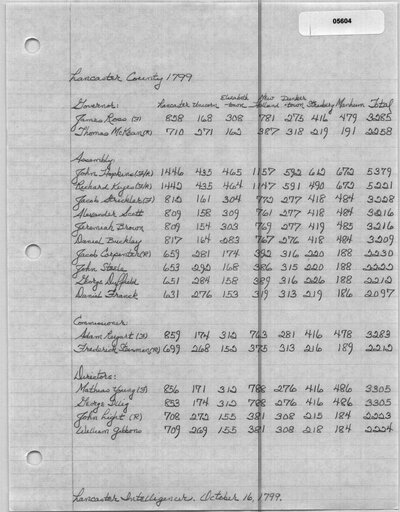 05604
Lancaster County 1799
Governor: Lancaster Uniown Elizabeth-town New Holland Dunker-town Strasburg Manheim Total
James Ross (F) 858 168 308 781 275 416 479 3285
Thomas McKean (R) 710 271 162 387 318 219 191 2258
Assembly:
John Hopkins (F/R) 1446 435 465 1157 592 612 672 5379
Richard Keyes (F/R) 1442 435 464 1147 591 490 672 5221
Jacob Strickler (F) 812 161 304 772 277 418 484 3228
Alexander Scott 809 158 309 761 277 418 484 3216
Jeremiah Brown 809 154 303 769 277 419 485 3216
Daniel Buckley 817 164 283 767 276 418 484 3209
Jacob Carpenter (R) 659 281 174 392 316 220 188 2230
John Steele 653 292 168 386 315 220 188 2222
George Duffield 651 284 158 389 316 226 188 2212
Daniel Franck 631 276 153 319 313 219 186 2097
Commissioner:
Adam Reigart (F) 859 174 312 763 281 416 478 3283
Frederick Seerman (R) 699 268 152 375 313 216 189 2212
Directors:
Mathias Young (F) 856 171 312 788 276 416 486 3305
George Illig 853 174 312 788 276 416 486 3305
John Light (R) 708 272 155 381 308 215 184 2223
William Gibbons 709 269 155 381 308 218 184 2224
Lancaster Intelligencer. October 16, 1799.